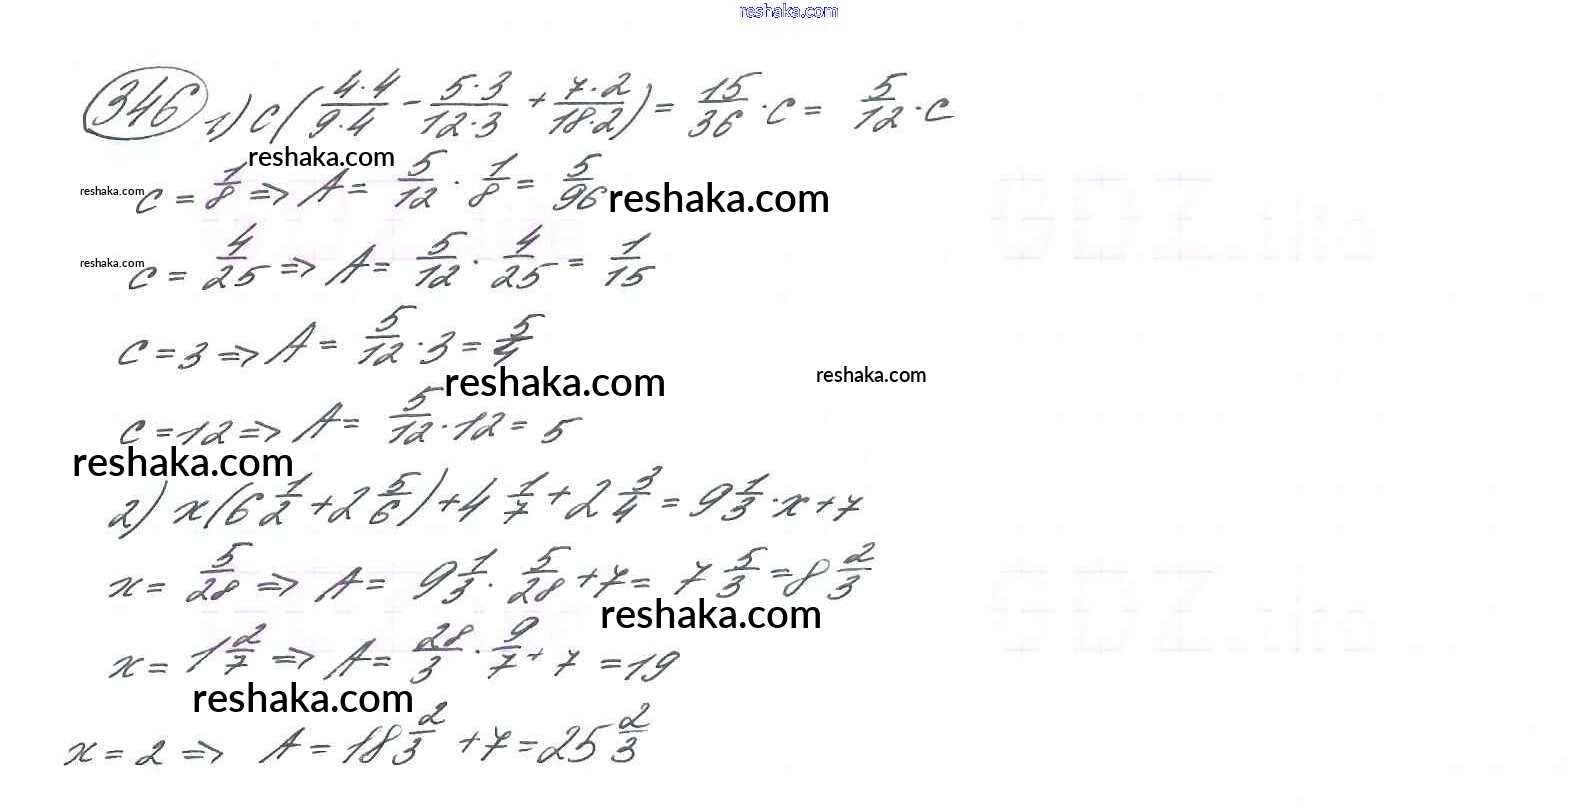 reshaka.com
346 1) c(4·4/9·4 - 5·3/12·3 + 7·2/18·2) = 15/36 · c = 5/12 · c
reshaka.com
reshaka.com c = 1/8 => A = 5/12 · 1/8 = 5/96 reshaka.com
reshaka.com c = 4/25 => A = 5/12 · 4/25 = 1/15
c = 3 => A = 5/12 · 3 = 5/4
reshaka.com reshaka.com
c = 12 => A = 5/12 · 12 = 5
reshaka.com
2) x(6 1/2 + 2 5/6) + 4 1/7 + 2 3/4 = 9 1/3 · x + 7
x = 5/28 => A = 9 1/3 · 5/28 + 7 = 7 5/3 = 8 2/3
reshaka.com
x = 1 2/7 => A = 28/3 · 9/7 + 7 = 19
reshaka.com
x = 2 => A = 18 2/3 + 7 = 25 2/3